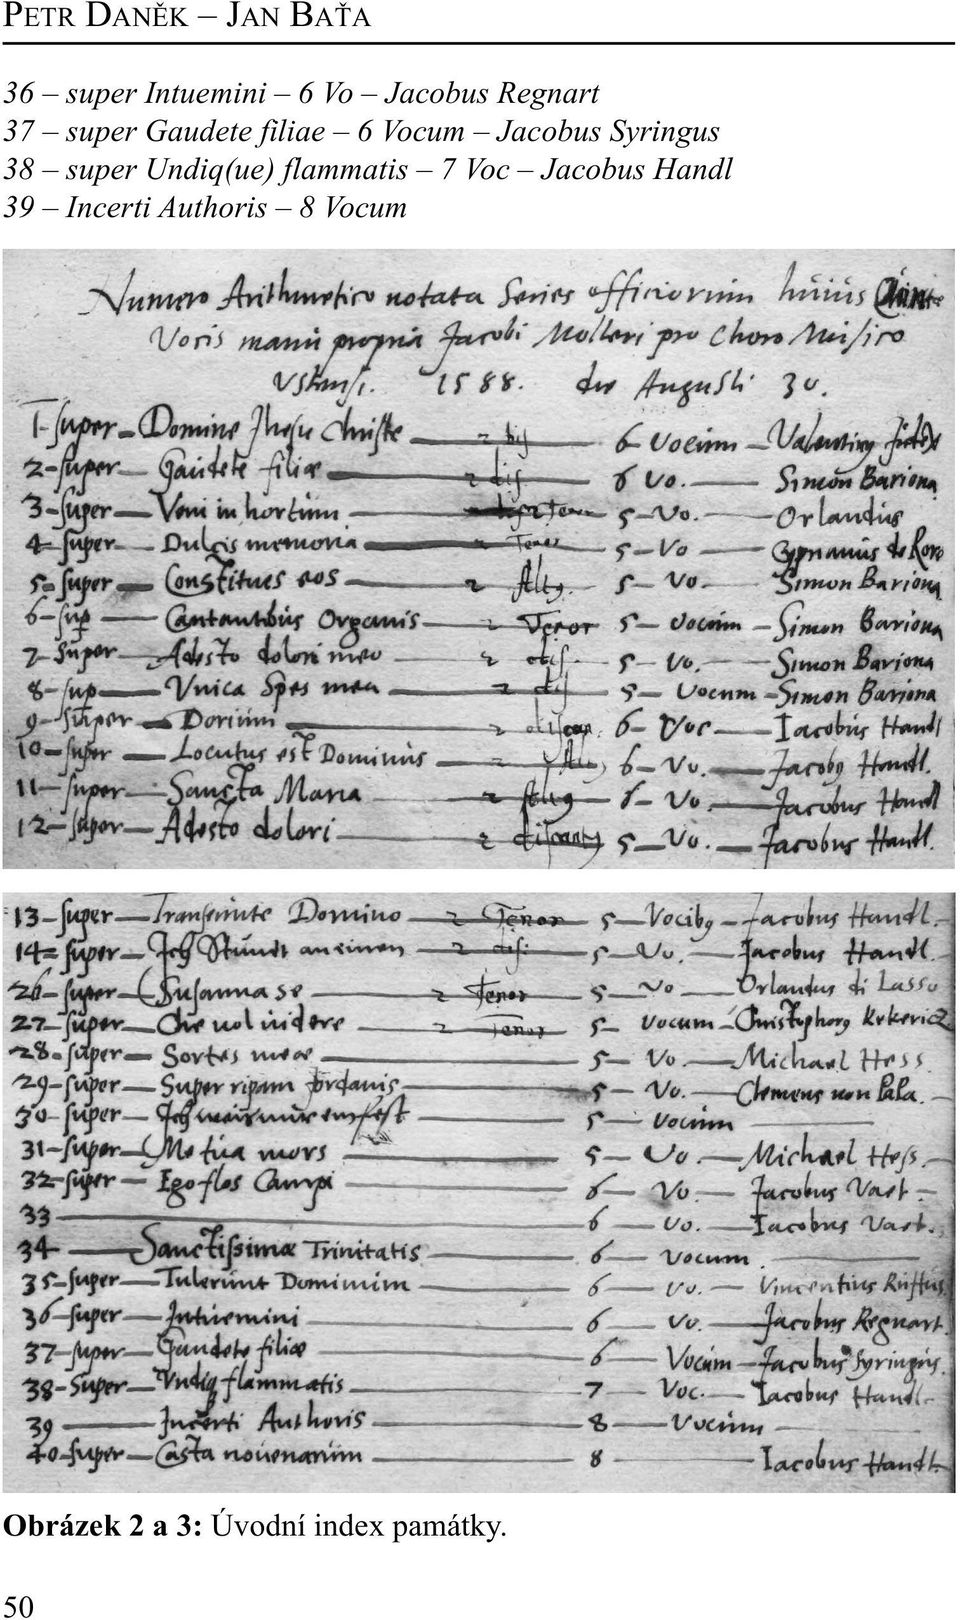 PETR DANĚK – JAN BAŤA
36 – super Intuemini – 6 Vo – Jacobus Regnart
37 – super Gaudete filiae – 6 Vocum – Jacobus Syringus
38 – super Undiq(ue) flammatis – 7 Voc – Jacobus Handl
39 – Incerti Authoris – 8 Vocum
Numero Arithmetico notata Series officiorum huius Quinte
Vocis manu propria Jacobi Molleri pro Choro Musico
Ustensi. 1588. die Augusti 30.
1-super – Domine Jhesu Christe – 2 dis – 6 Vocum – Valentinus
2-super – Gaudete filiae – 2 dis – 6 Vo. – Simon Bariona
3-super – Veni in hortum – 5 – Vo. – Orlandus
4-super – Dulcis memoria – 2 Tenor – 5 – Vo – Cyprianus de Rore
5-super – Constitues eos – 2 Altus – 5 – Vo. – Simon Bariona
6-sup – Cantantibus Organis – 2 Tenor – 5 – vocum – Simon Bariona
7-super – Adesto dolori meo – 2 dis. – 5 – Vo. – Simon Bariona
8-sup – Unica Spes mea – 2 dis – 5 – Vocum – Simon Bariona
9-super – Dorium – 2 discan. – 6 – Voc – Iacobus Handl
10-super – Locutus est Dominus – 2 Altus – 6 – Vo. – Jacobus Handl.
11-super – Sancta Maria – 2 Altus – 6 – Vo. – Jacobus Handl
12-super – Adesto dolori – 2 discantus – 5 – Vo. – Jacobus Handl.
13-super – Transeunte Domino – 2 Tenor – 5 – Vocibus – Jacobus Handl.
14-super – Ich Stundt an einen – 2 dis. – 5 – Vo. – Jacobus Handl.
26-super – Susanna se – 2 Tenor – 5 – Vo – Orlandus di Lasso
27-super – Che vol videre – 2 Tenor – 5 – Vocum – Christophorus
28-super – Sortes meae – 5 – Vo. – Michael Hess.
29-super – Super ripam Jordanis – 5 – Vo. – Clemens non PaPa.
30-super – 5 – Vocum
31-super – Me tua mors – 5 – Vo. – Michael Hess.
32-super – Ego flos Campi – 6 – Vo. – Jacobus Vaet –
33 – 6 – Vo. – Iacobus Vaet.
34 – Sanctissimae Trinitatis – 6 – Vocum
35-super – Tulerunt Dominum – 6 – Vo. – Vincentius Ruffus
36-super – Intuemini – 6 – Vo. – Jacobus Regnart.
37-super – Gaudete filiae – 6 – Vocum – Jacobus Syringus.
38-Super – Undiq flammatis – 7 – Voc. – Iacobus Handl
39 – Incerti Authoris – 8 – Vocum
40-super – Casta novenarum – 8 – Iacobus Handl.
Obrázek 2 a 3: Úvodní index památky.
50